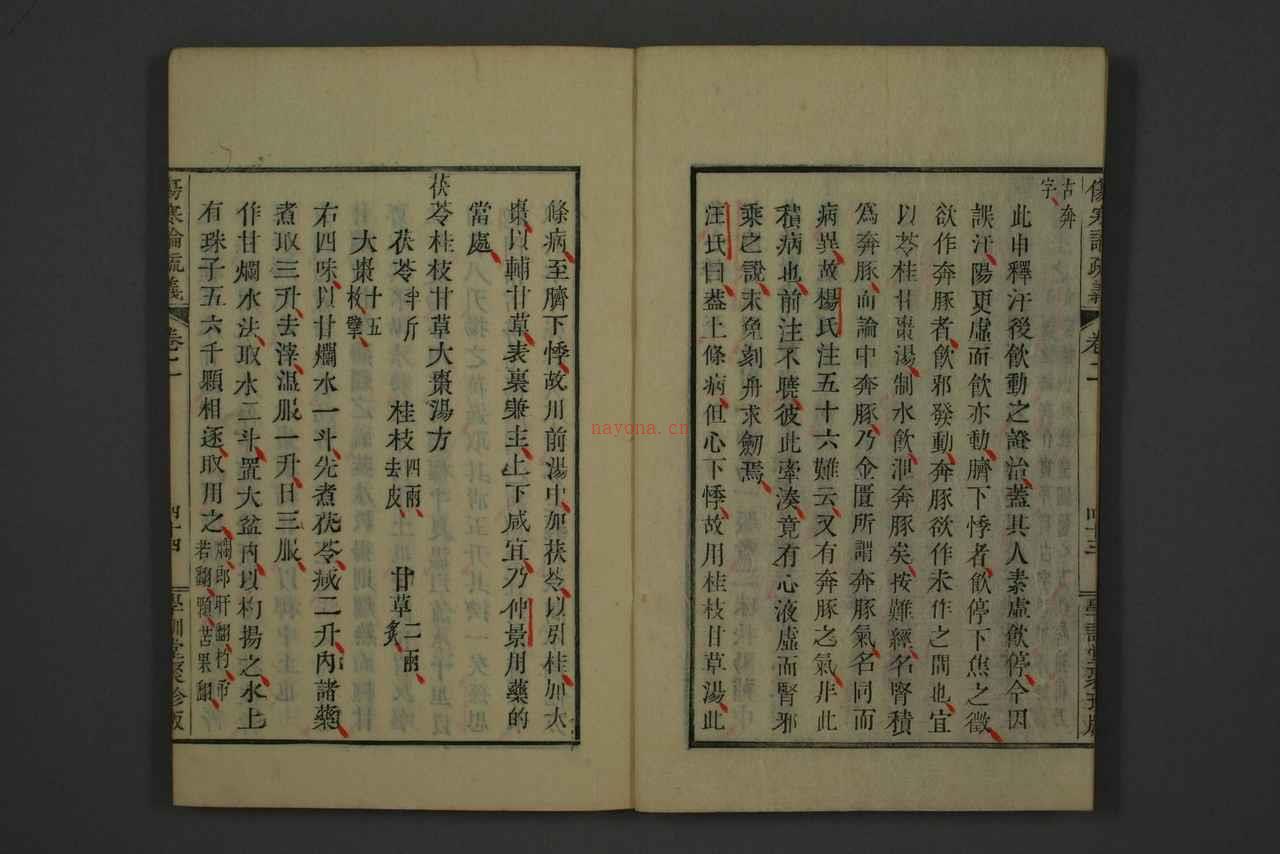 傷寒論疏義 卷二 四十三 學訓堂聚珍版
古奔
字
此申釋汗後飲動之證治蓋其人素虛飲停今因
誤汗陽更虛而飲亦動臍下悸者飲停下焦之徵
欲作奔豚者飲邪發動奔豚欲作未作之間也宜
以苓桂甘棗湯制水飲泄奔豚矣按難經名腎積
爲奔豚而論中奔豚乃金匱所謂奔豚氣名同而
病異故楊氏注五十六難云又有奔豚之氣非此
積病也前注不曉彼此牽湊竟有心液虛而腎邪
乘之說未免刻舟求劒焉
汪氏曰蓋上條病但心下悸故用桂枝甘草湯此
nayona.cn
條病至臍下悸故用前湯中加茯苓以引桂加大
棗以輔甘草表裏兼主上下咸宜乃仲景用藥的
當處
茯苓桂枝甘草大棗湯方
茯苓半斤 桂枝四兩去皮 甘草二兩炙
大棗十五枚擘
右四味以甘爛水一斗先煮茯苓減二升內諸藥
煮取三升去滓溫服一升日三服
作甘爛水法取水二斗置大盆內以杓揚之水上
有珠子五六千顆相逐取用之爛郎旰翻杓市若翻顆苦果翻
傷寒論疏義 卷二 四十四 學訓堂聚珍版